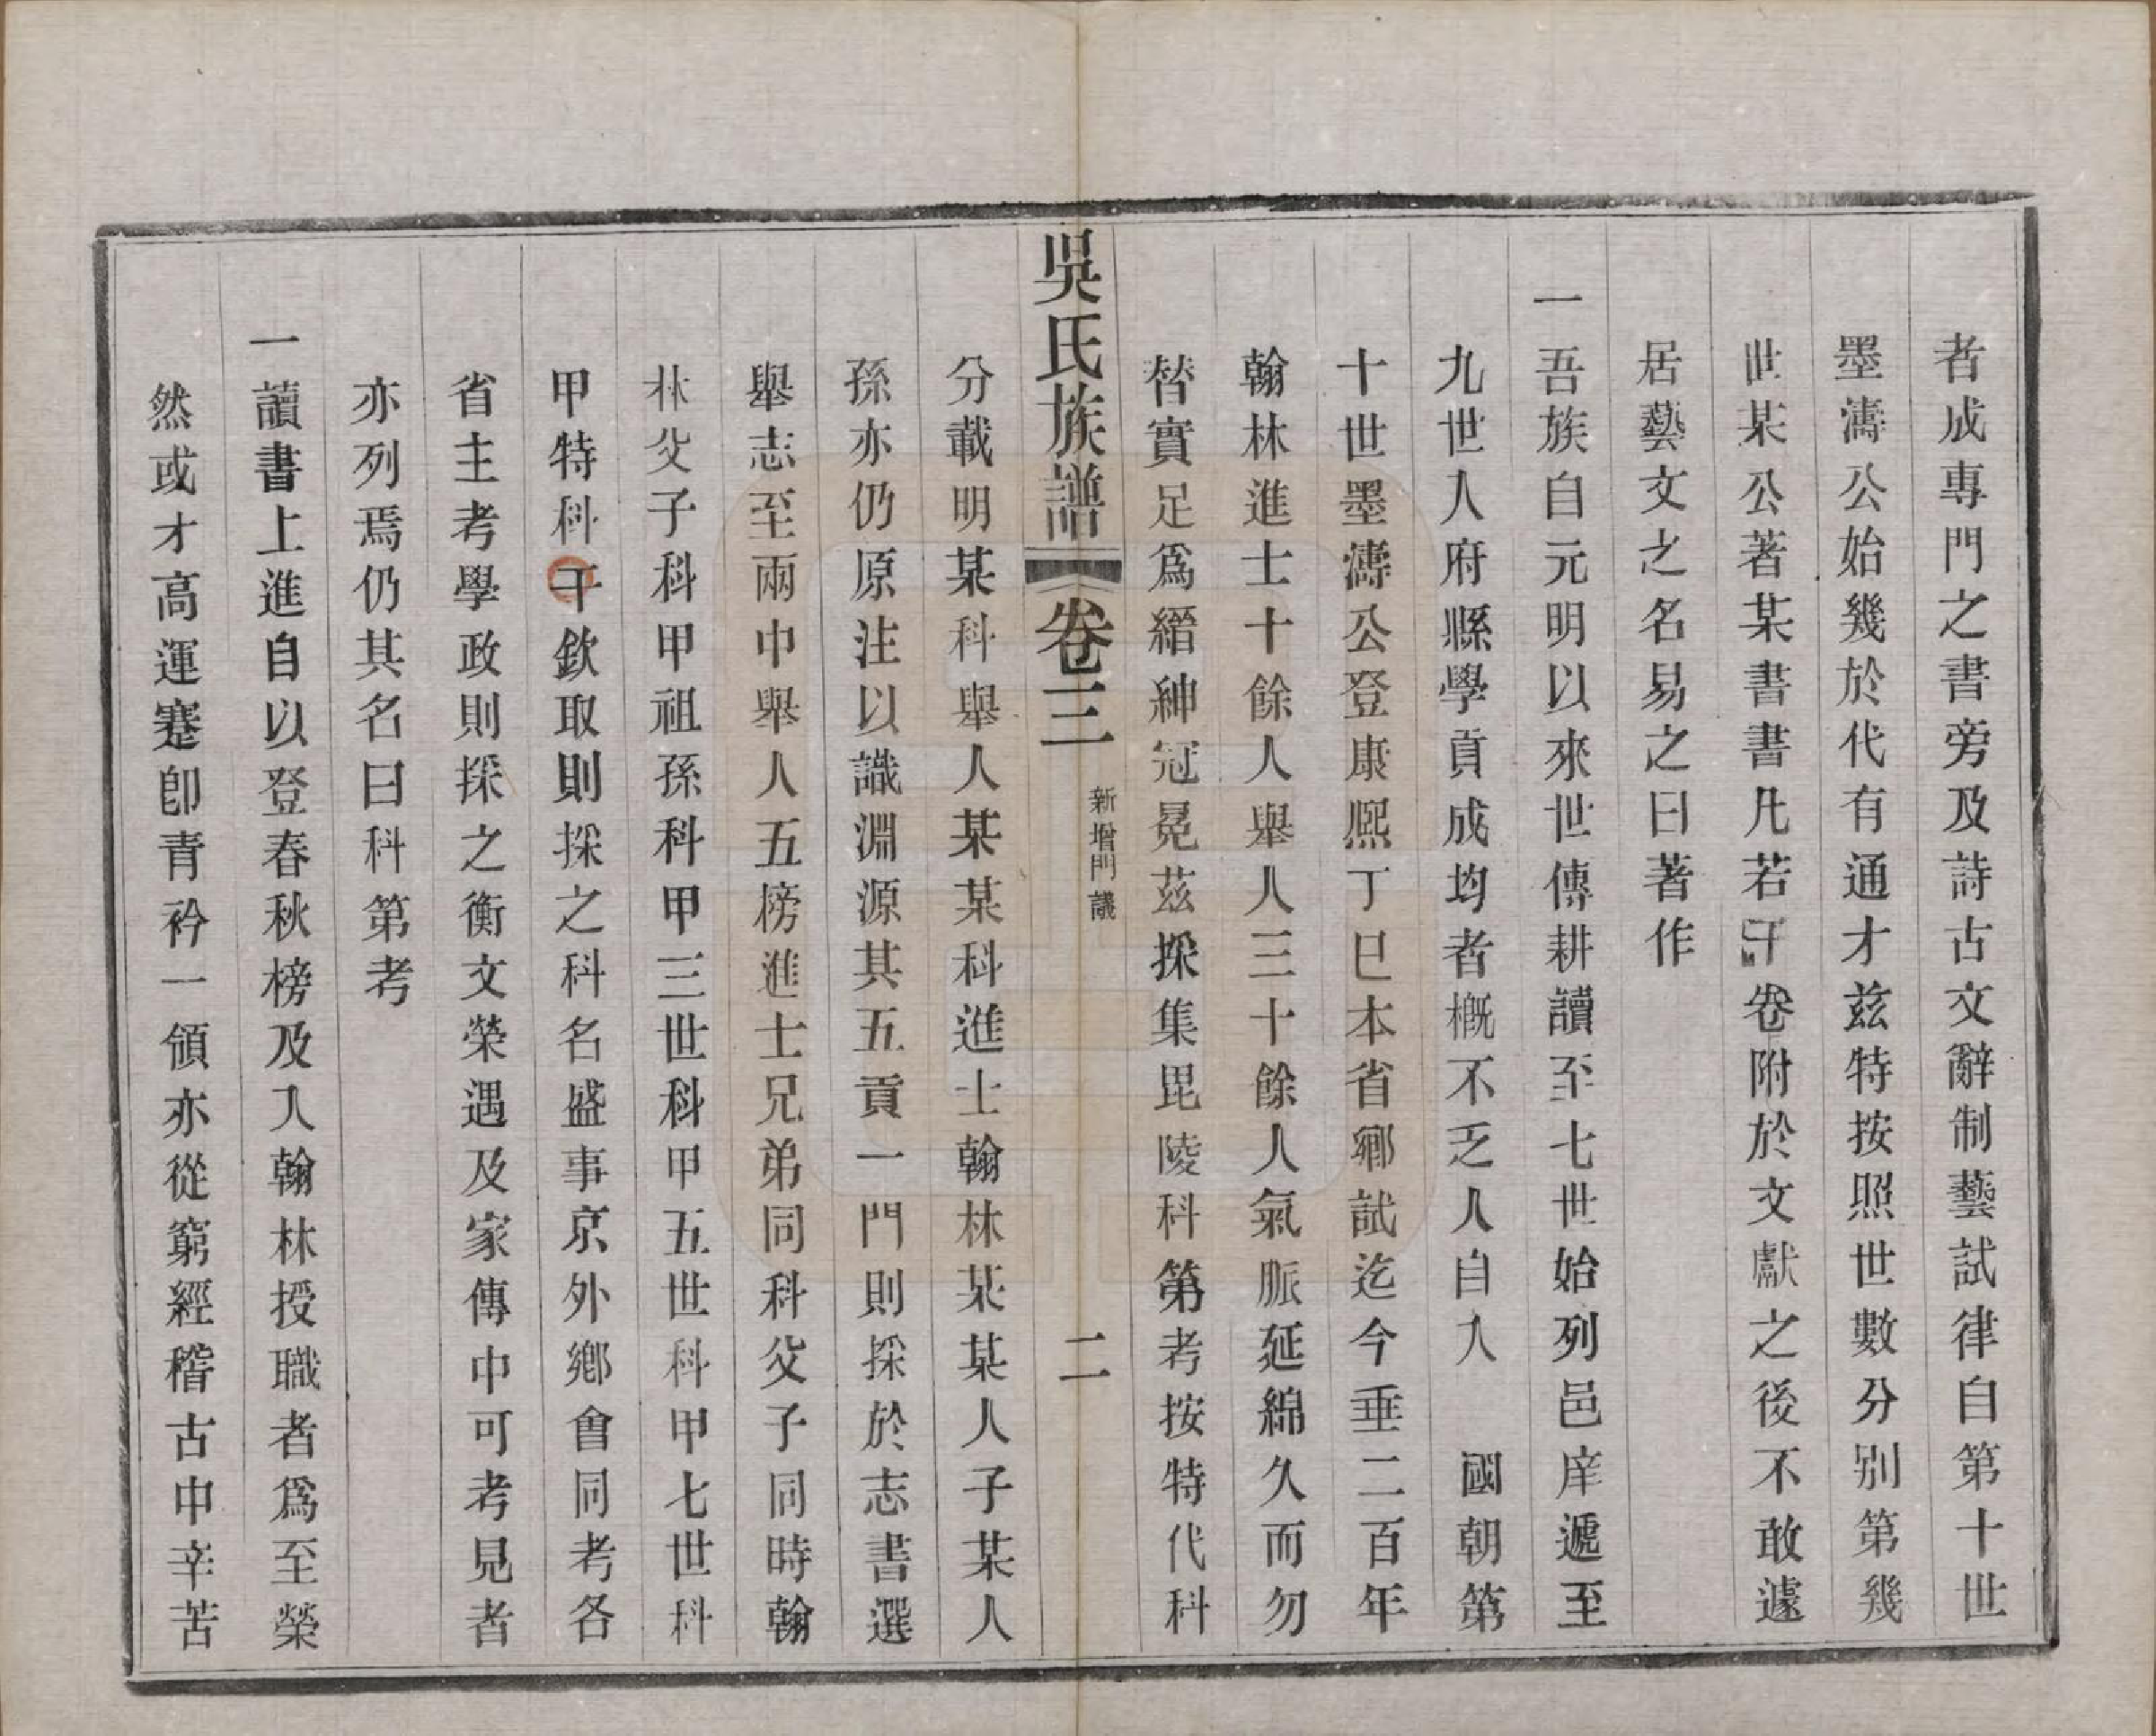 者成專門之書旁及詩古文辭制藝試律自第十世
墨濤公始幾於代有通才兹特按照世數分別第幾
世某公著某書書凡若干卷附於文獻之後不敢遽
居藝文之名易之曰著作
一吾族自元明以來世傳耕讀至七世始列邑庠遞至
九世入府縣學貢成均者概不乏人自入　國朝第
十世墨濤公登康熙丁巳本省鄉試迄今垂二百年
翰林進士十餘人舉人三十餘人氣脈延綿久而勿
替實足爲縉紳冠冕茲採集毘陵科第考按特代科
吳氏族譜　卷三　新增門議　二
分載明某科舉人某某科進士翰林某某人子某人
孫亦仍原注以識淵源其五貢一門則採於志書選
舉志至兩中舉人五榜進士兄弟同科父子同時翰
林父子科甲祖孫科甲三世科甲五世科甲七世科
甲特科干欽取則採之科名盛事京外鄉會同考各
省主考學政則採之衡文榮遇及家傳中可考見者
亦列焉仍其名曰科第考
一讀書上進自以登春秋榜及入翰林授職者爲至榮
然或才高運蹇卽青衿一領亦從窮經稽古中辛苦